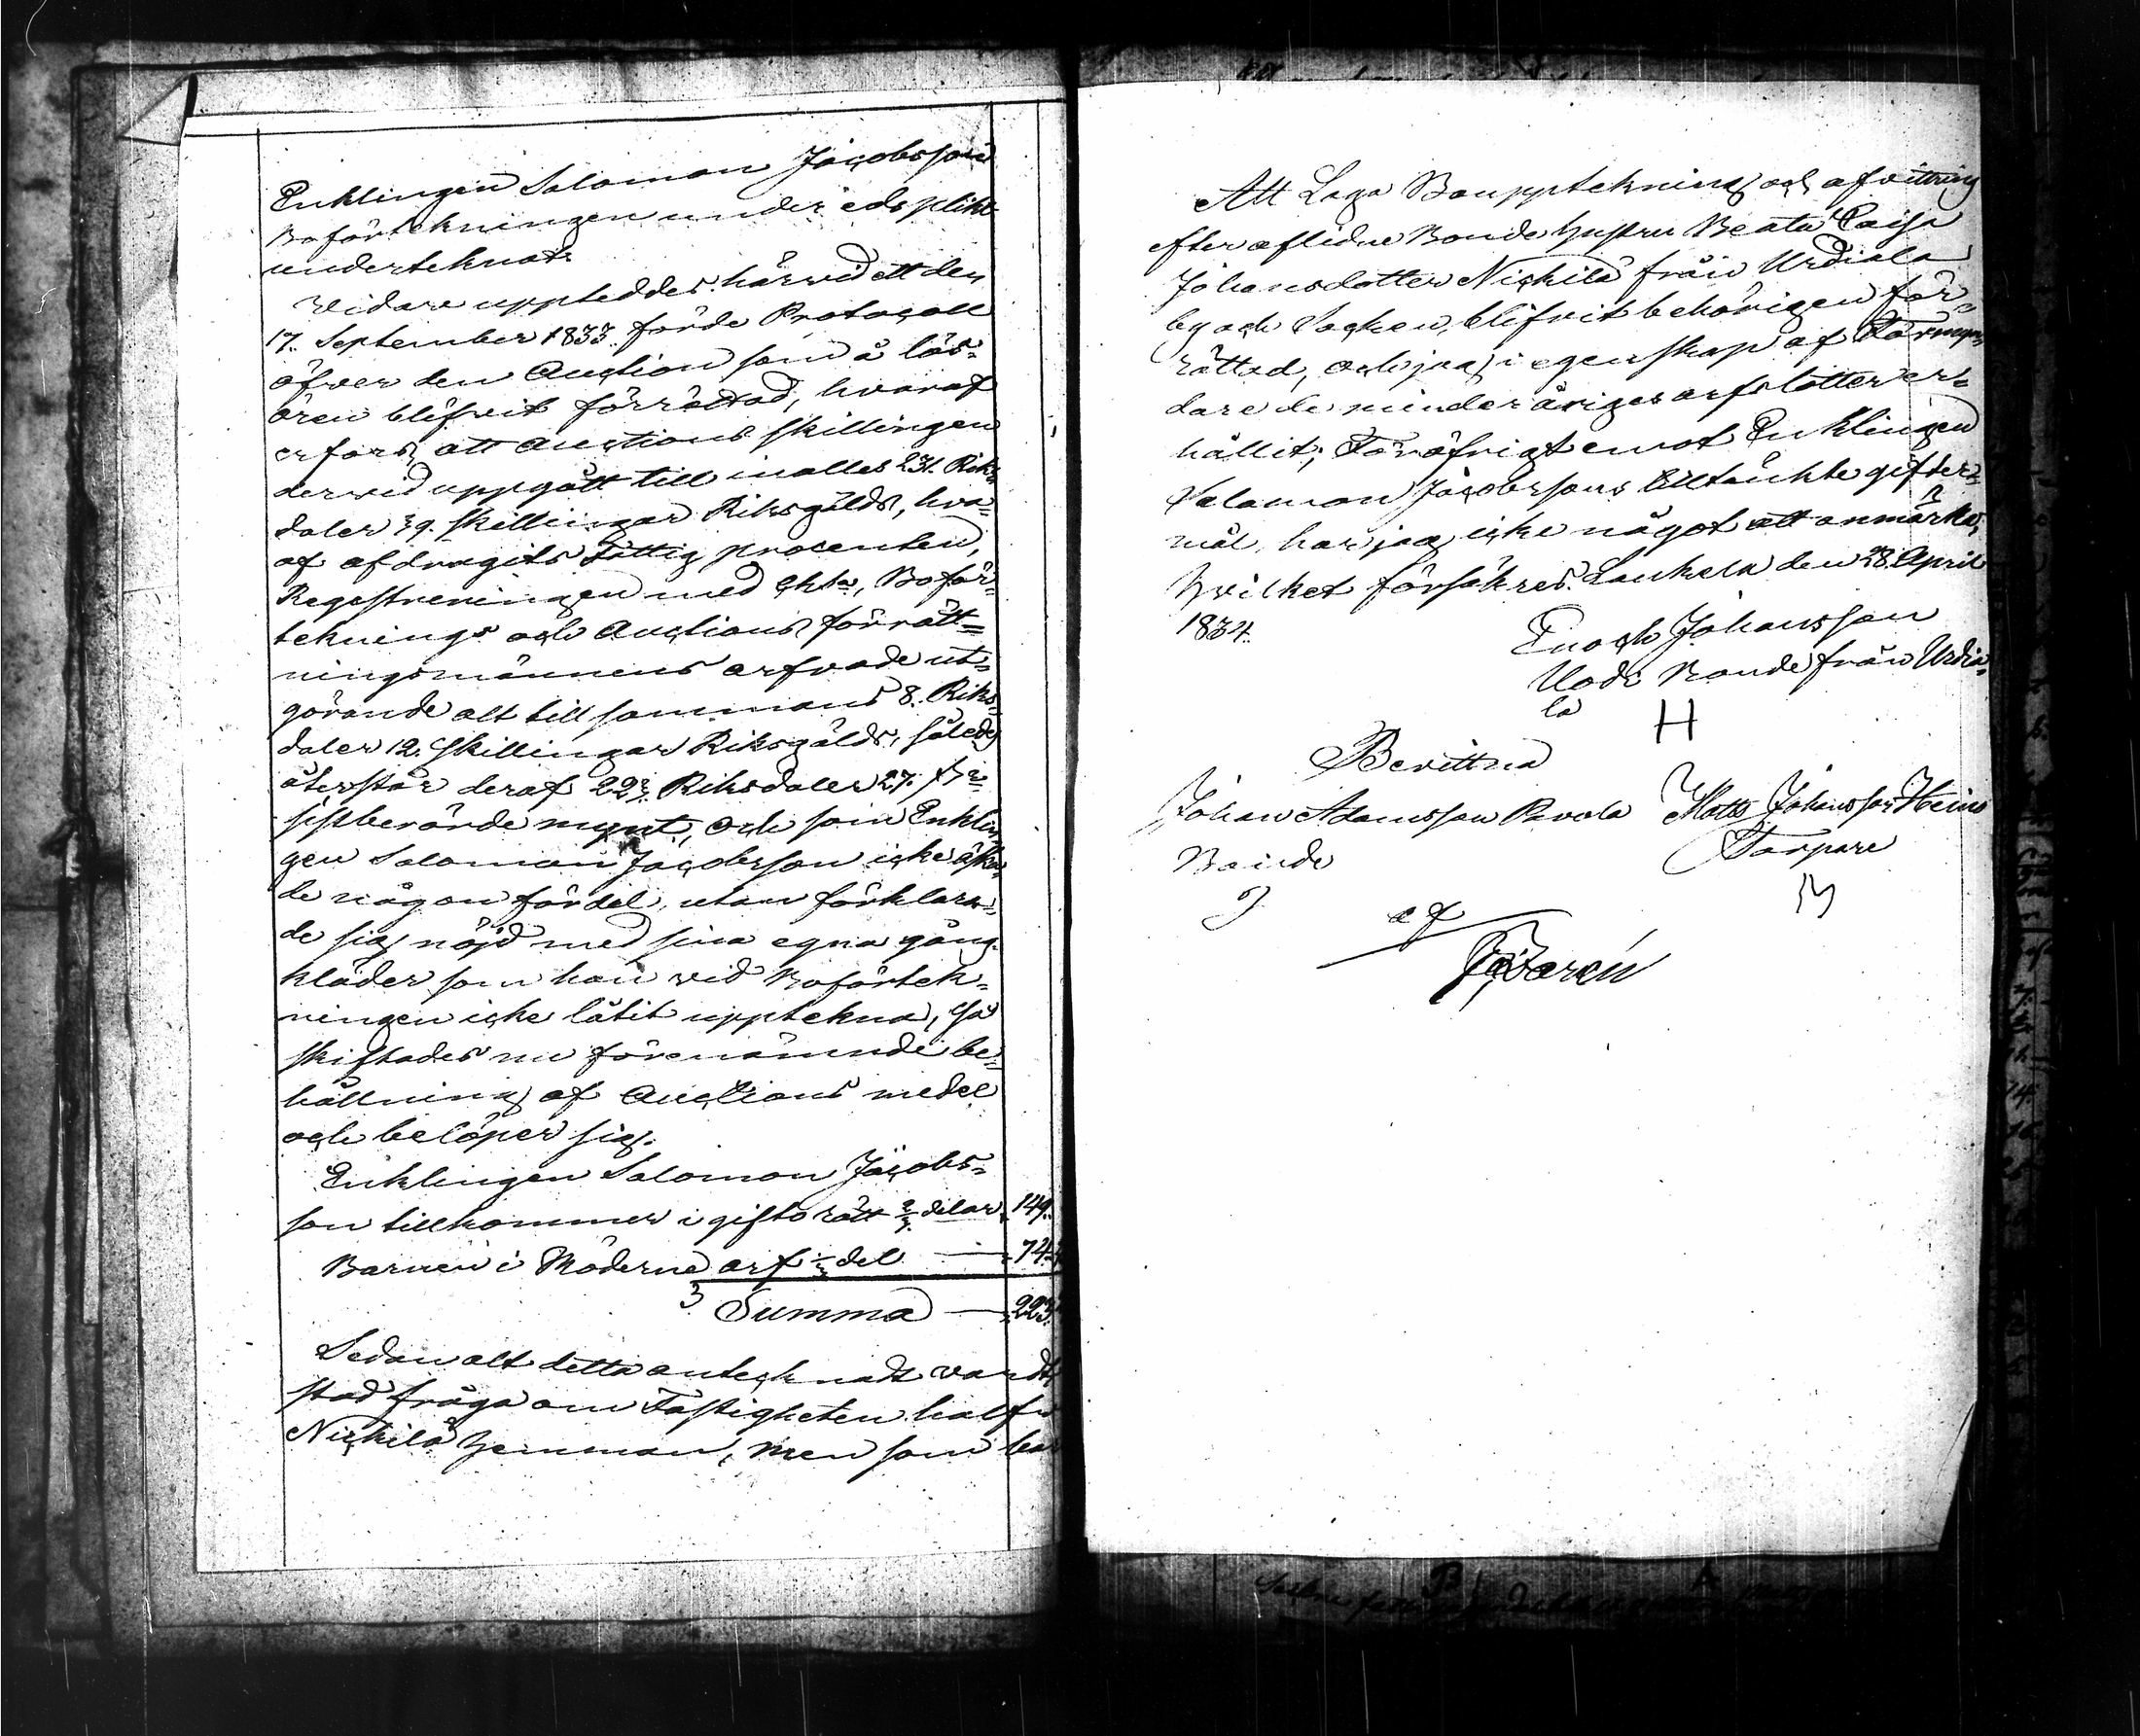 Enklingen Salomon Jacobsson
Boförtekningen under eds plikt
underteknat.
Vidare uppteddes härvid ett den
17. September 1833. förde Protocoll
öfver den Auction som å lös-
ören blifvit förrättad, hvaraf
erfors, att auctions skillingen
dervid uppgått till inalles 231. Riks
daler 39. skillingar Riksgälds, hva-
af afdragits Fattig procenten,
Regestreringen med Chta, Boför-
teknings och Auctions förrätt-
ningsmännens arfvode ut-
görande alt till sammans 8. Riks-
daler 12. skillingar Riksgälds, således
återstår deraf 223. Riksdaler 27. s
sistberörde mynt, och som Enklin
gen Salomon Jacobsson icke äska
de någon fördel, utan förklara-
de sig nöjd med sina egna gång-
kläder som han vid Boförtek-
ningen icke låtit upptekna, så
skiftades nu förenämnde be-
hållning af Auctions medel
och belöper sig.
Enklingen Salomon Jacobs-
son tillkommer i gifto rätt 2/3 delar 149.
Barnen i Möderne arf 1/3 del 74.
Summa 223.
Sedan alt detta antecknadt vardt
stad fråga om Fastigheten halfva
Nickilä hemman, men som
Att Laga Bouppteckning och afvittring
efter aflidne Bonde hustru Beata Caisa
Johansdotter Nickilä från Urdiala
by och Socken, blifvit behörigen för-
rättad, och jag i egenskap af Förmyn-
dare de minderåriges arfslotter er-
hållit; Föröfrigt emot Enklingen
Salomon Jacobssons tilltänkte gifter-
mål, har jag icke något att anmärka,
hvilket försäkres. Laukela den 28. April
1834.
Enoch Johansson
Uodi Bonde från Urdia-
la
H
Bevittna
Johan Adamsson Pavola Matts Johansson Heino
Bonde Torpare
af